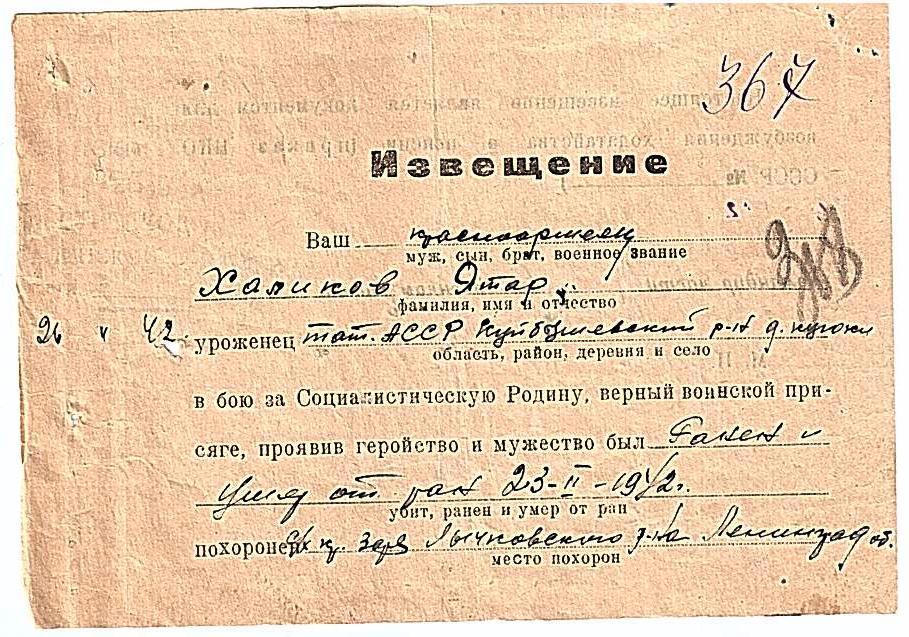 367
Извещение
Ваш красноармеец
муж, сын, брат, военное звание
Халиков
фамилия, имя и отчество
42 уроженец тат. АССР Куйбышевский р-н д.
область, район, деревня и село
в бою за Социалистическую Родину, верный воинской при-
сяге, проявив геройство и мужество был ранен и
умер от ран 23-II-1942г.
убит, ранен и умер от ран
похоронен кр. Заря Лычковского р-на Ленинград об.
место похорон